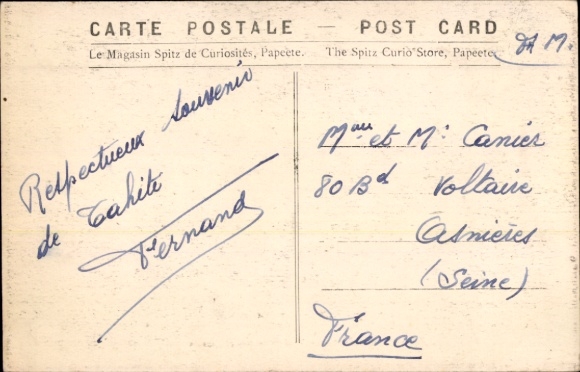 CARTE POSTALE — POST CARD
Le Magasin Spitz de Curiosités, Papeete. The Spitz Curio Store, Papeete.
Respectueux souvenir
de Tahiti
Fernand
Mme et Mr Canier
80 Bd Voltaire
Asnières
(Seine)
France